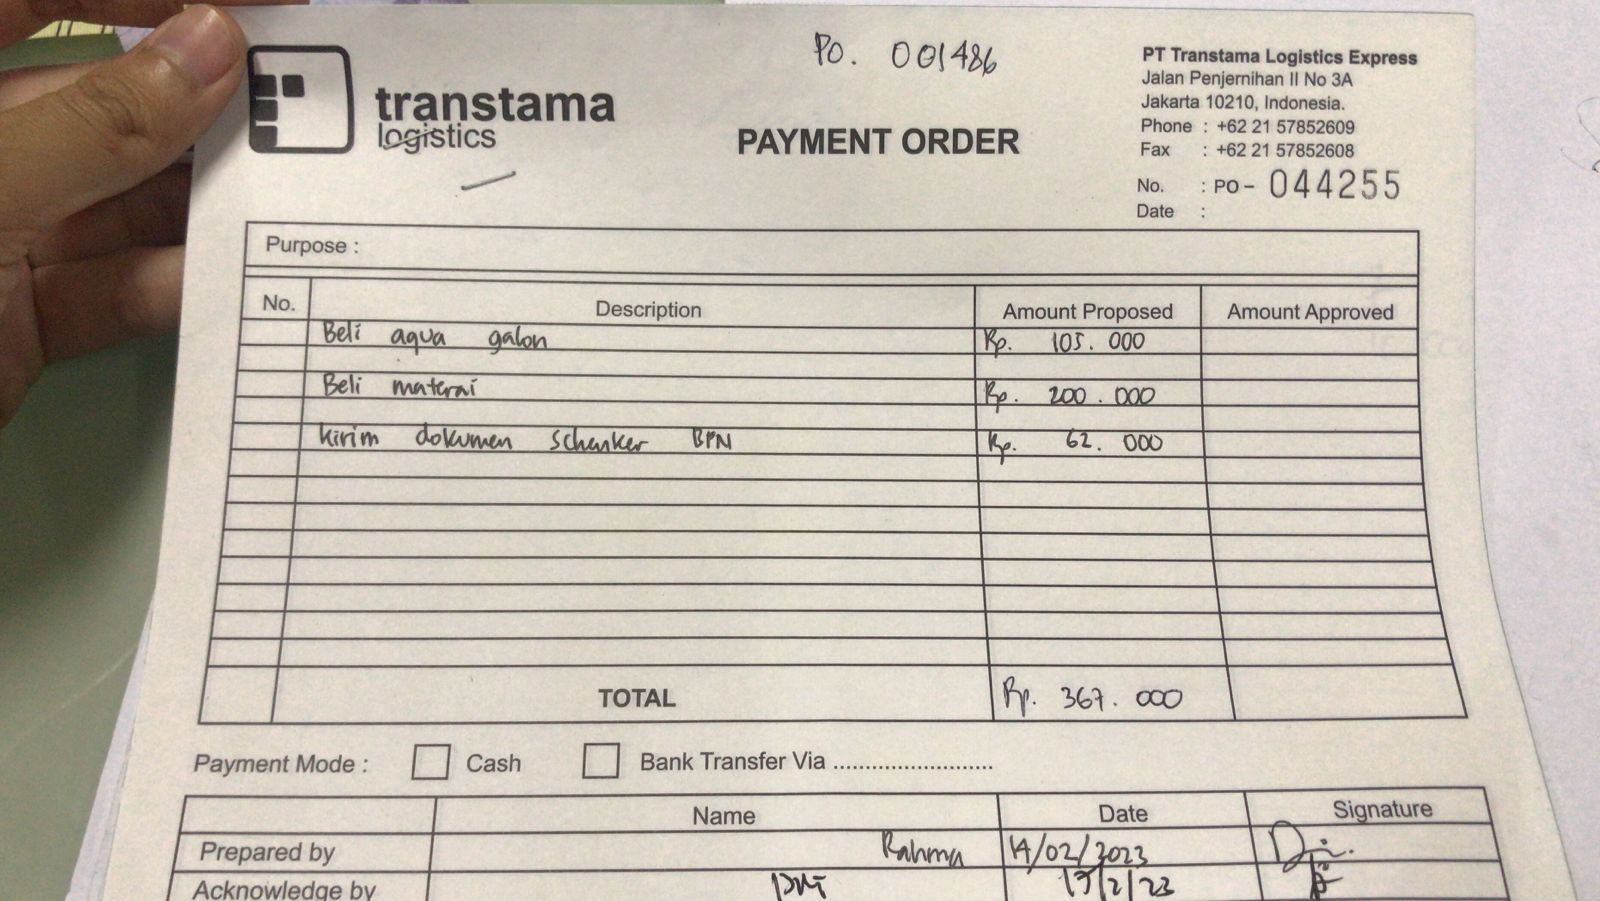 PO. 001486
transtama
logistics
PAYMENT ORDER
PT Transtama Logistics Express
Jalan Penjernihan II No 3A
Jakarta 10210, Indonesia.
Phone : +62 21 57852609
Fax : +62 21 57852608
No. : PO - 044255
Date :
Purpose :
No. Description Amount Proposed Amount Approved
Beli aqua galon Rp. 105.000
Beli materai Rp. 200.000
kirim dokumen schenker BPN Rp. 62.000
TOTAL Rp. 367.000
Payment Mode : Cash Bank Transfer Via ..........................
Name Date Signature
Prepared by Rahma 14/02/2023
Acknowledge by 17/2/23